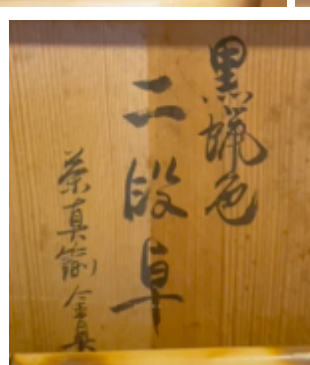 黒蝋色
二段卓
茶真飾金具